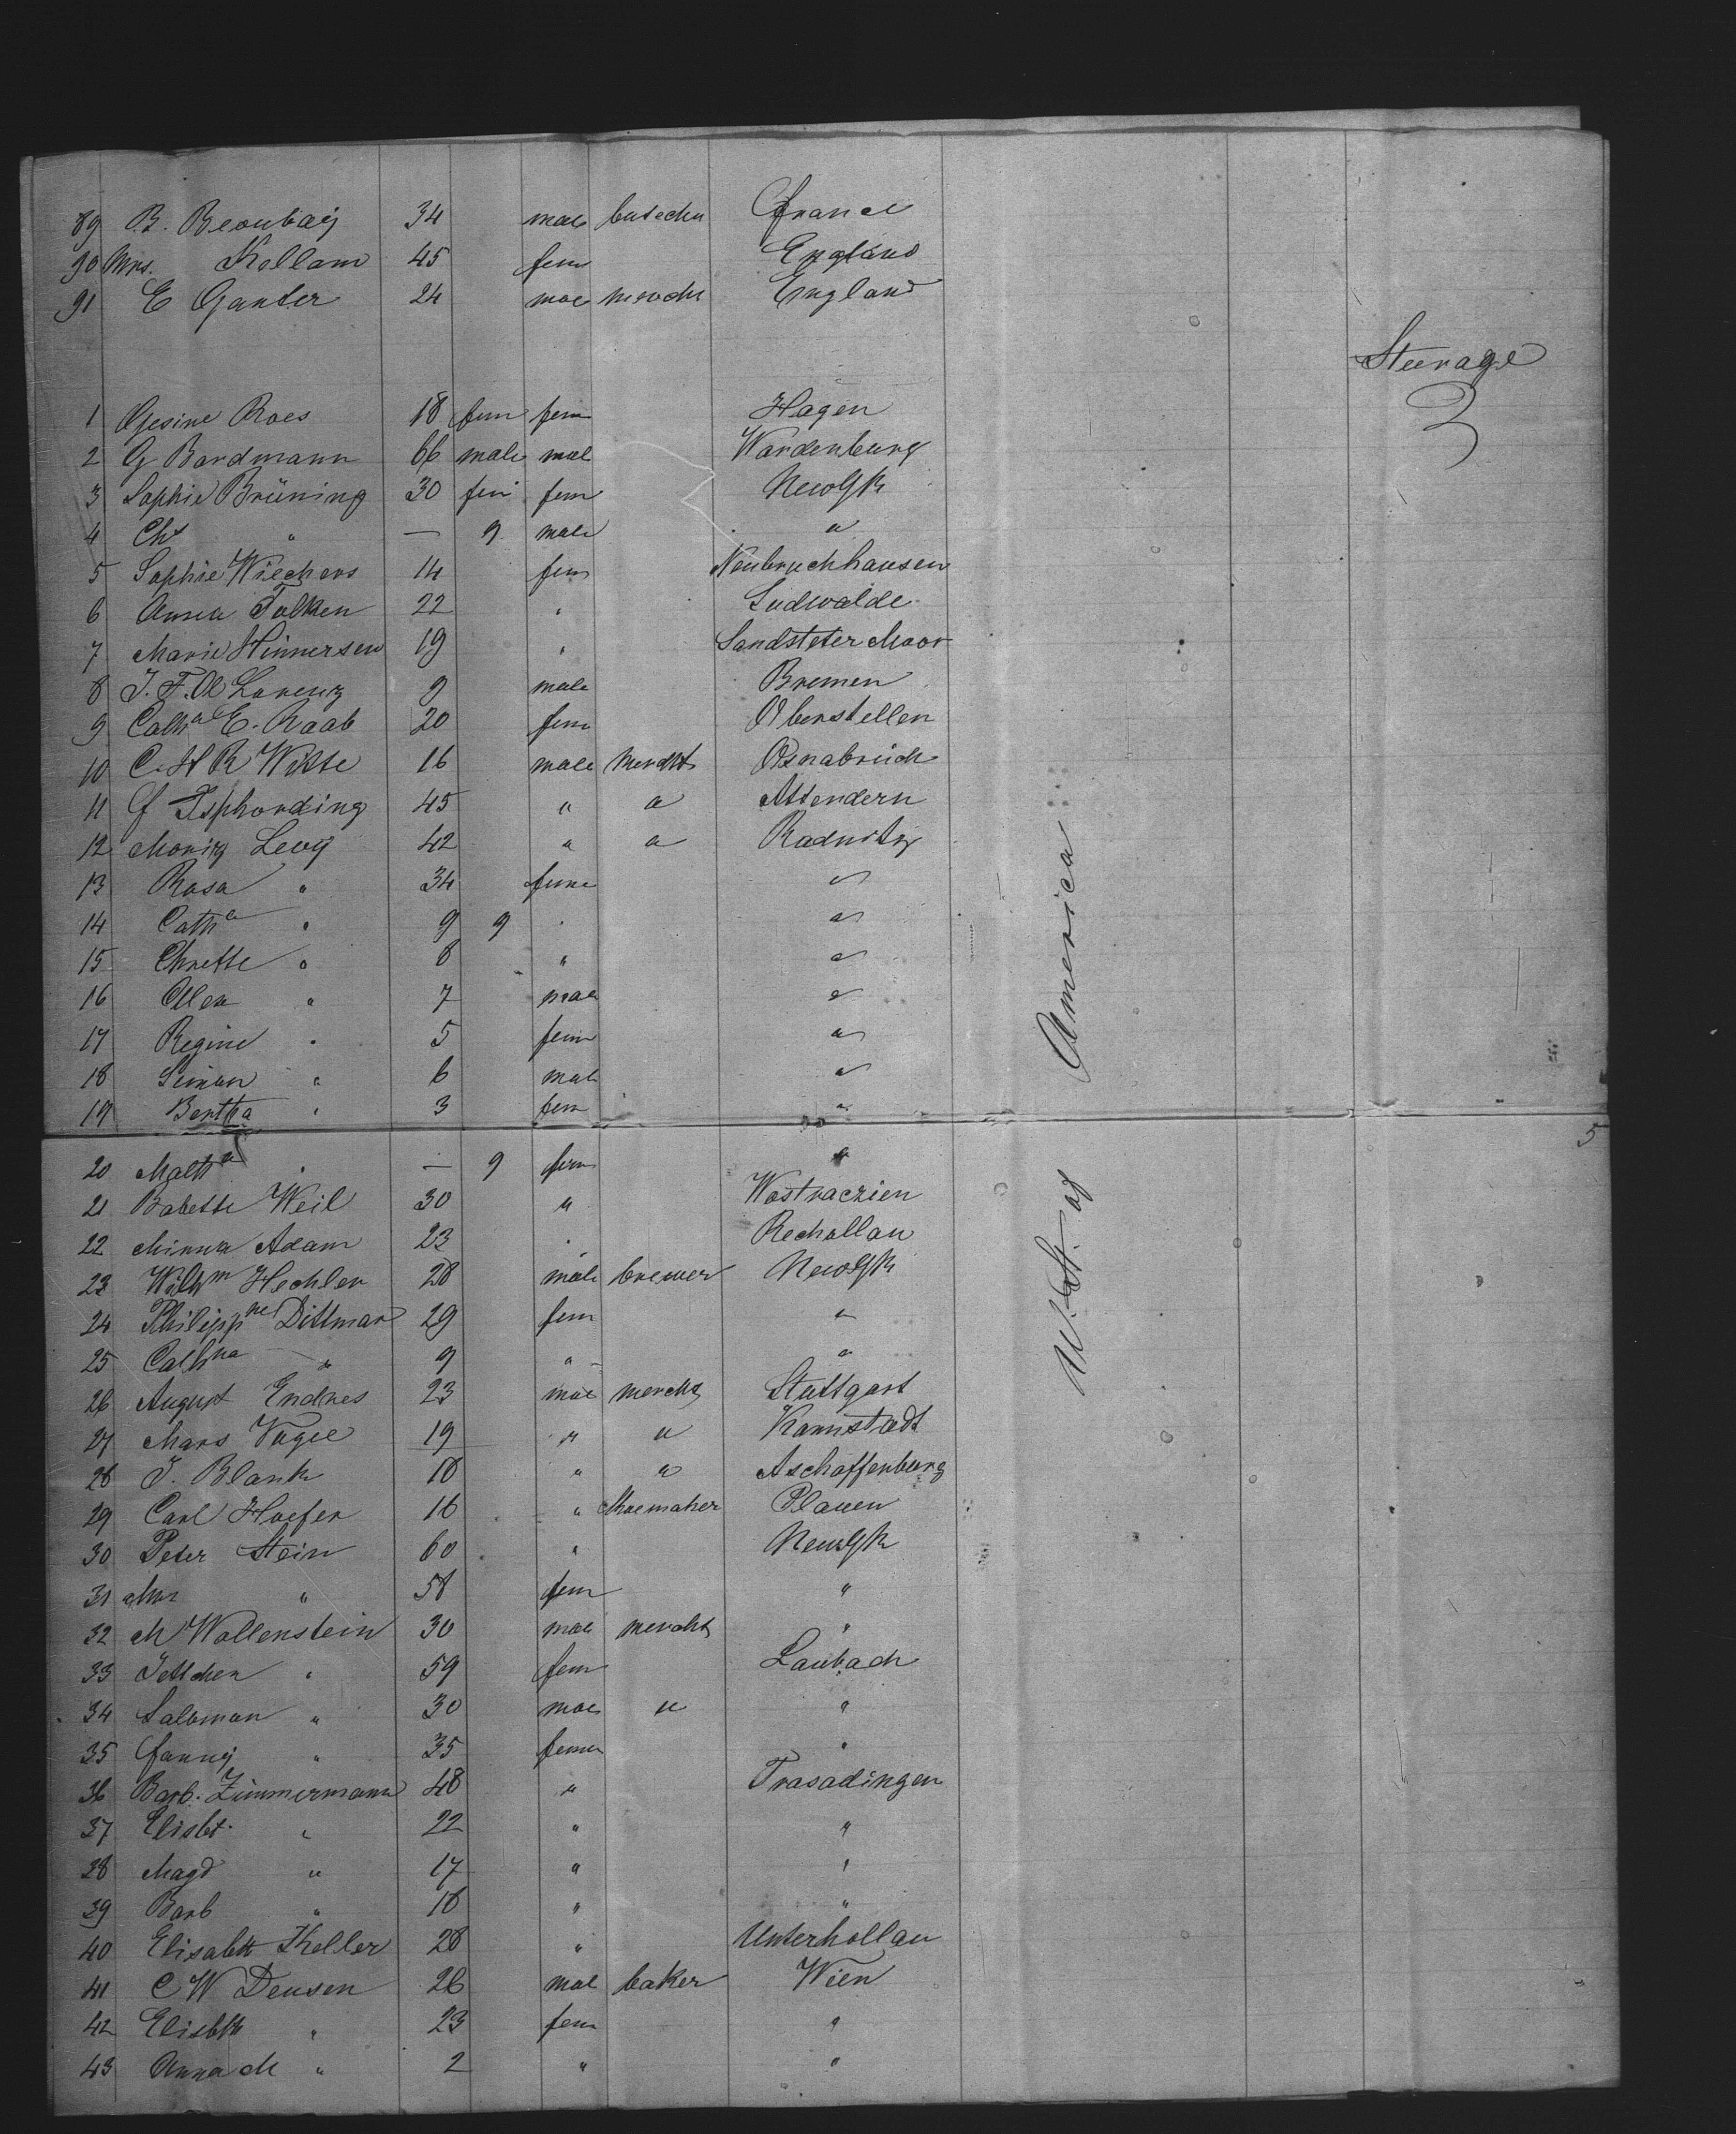 89 B. Beoubay 34 male butcher France
90 Mrs. Kellam 45 fem England
91 E Ganter 24 male mercht England
Steerage
1 Gesine Roes 18 fem fem Hagen
2 G Bardmann 66 male male Wardenburg
3 Sophie Brüning 30 fem fem NewYk
4 Chs " — 9 male "
5 Sophie Wiechers 14 fem Neubruchhausen
6 Anna Tolken 22 " Sudwalde
7 Marie Hinnersen 19 " Sandsteter Moor
8 J. F. A Lorenz 9 male Bremen
9 Catha E. Raab 20 fem Oberstellen
10 C. H R Witte 16 male mercht Osnabrück
11 F Isphording 45 " " Attendern
12 Moritz Levy 42 " " Radnitz
13 Rosa " 34 fem "
14 Catha " 9 9 " "
15 " 8 " "
16 Alex " 7 male "
17 Regine " 5 fem "
18 Simon " 6 male "
19 Bertha " 3 fem "
5
20 Matha " — 9 fem "
21 Babette Weil 30 " Wostraczien
22 Minna Adam 23 " Rechollau
23 Wilhm Hechler 28 male brewer NewYk
24 Philippne Dittmar 29 fem "
25 Cathna " 9 " "
26 August Endres 23 male mercht Stuttgart
27 Mars Vogel 19 " " Kannstadt
28 J. Blank 18 " " Aschaffenburg
29 Carl Hoefer 16 " Shoemaker Plauen
30 Peter Stein 60 " NewYk
31 Mrs " 58 fem "
32 M Wallenstein 30 male mercht "
33 Jettchen " 59 fem Laubach
34 Salomon " 30 male " "
35 Fanny " 35 fem "
36 Barb. Zimmermann 48 " Trasadingen
37 Elisbt. " 22 " "
38 Magd " 17 " "
39 Barb " 18 " "
40 Elisabth Keller 28 " Unterhollau
41 C W Deusen 26 male baker Wien
42 Elisbth " 23 fem "
43 Anna M " 2 " "
U. St. of America